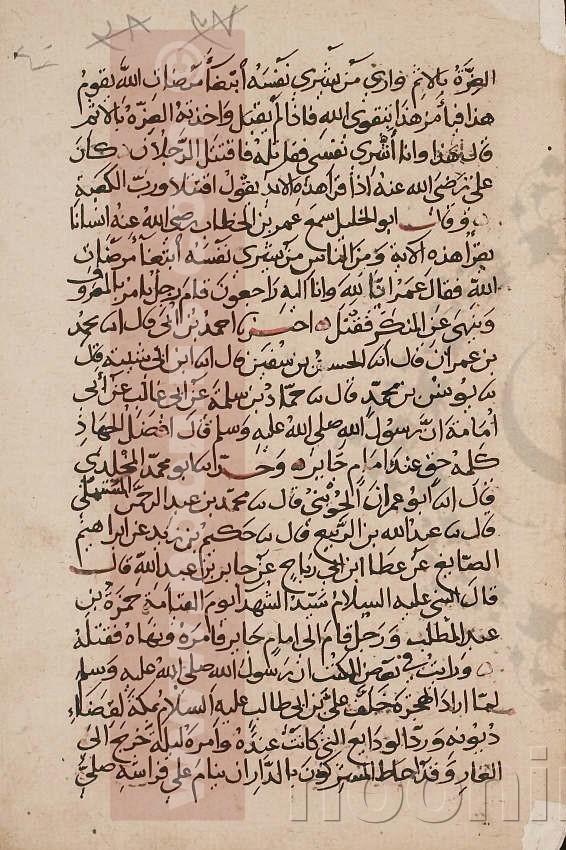 العزة بالاثم وارى من يشرى نفسه ابتغا مرضات الله يقوم
هذا فيأمر هذا بتقوى الله فاذا لم يقبل واخذته العزه بالاثم
قال هذا وانا اشرى نفسى فقاتله فاقتتل الرجلان كان
على رضى الله عنه اذا قرا هذه الاية يقول اقتتلا ورب الكعبة
وقال ابو الخليل سمع عمر بن الخطاب رضى الله عنه انسانا
يقرأ هذه الاية ومن الناس من يشرى نفسه ابتغا مرضات
الله فقال عمر انا لله وانا اليه راجعون قام رجل يامر بالمعروف
وينهى عن المنكر فقتل اخبرنا احمد بن ابى قال سا محمد
بن عمران قال سا الحسن بن سفين قال سا ابن ابى شيبه قال
سا يونس بن محمد قال سا حماد بن سلمة عن ابى غالب عن ابى
امامة ان رسول الله صلى الله عليه وسلم قال افضل الجهاد
كلمة حق عند امام جابر وحدثنا ابو محمد المخلدى
قال سا ابو عمران الجوينى قال سا محمد بن عبد الرحمن
قال سا عبد الله بن الربيع قال سا حكيم بن زيد عن ابراهيم
الصايغ عن عطا ابن ابى رباح عن جابر بن عبد الله قال
قال النبى عليه السلام سيد الشهدا يوم القيامة حمزة بن
عبد المطلب ورجل قام الى امام جابر فامره ونهاه فقتله
ورايت فى بعض الكتب ان رسول الله صلى الله عليه وسلم
لما اراد الهجرة خلف على بن ابى طالب عليه السلام بمكة لقضاء
ديونه ورد الودايع التى كانت عنده وامره ليلة خرج الى
الغار وقد احاط المشركون بالدار ان ينام على فراشه صلى
noon